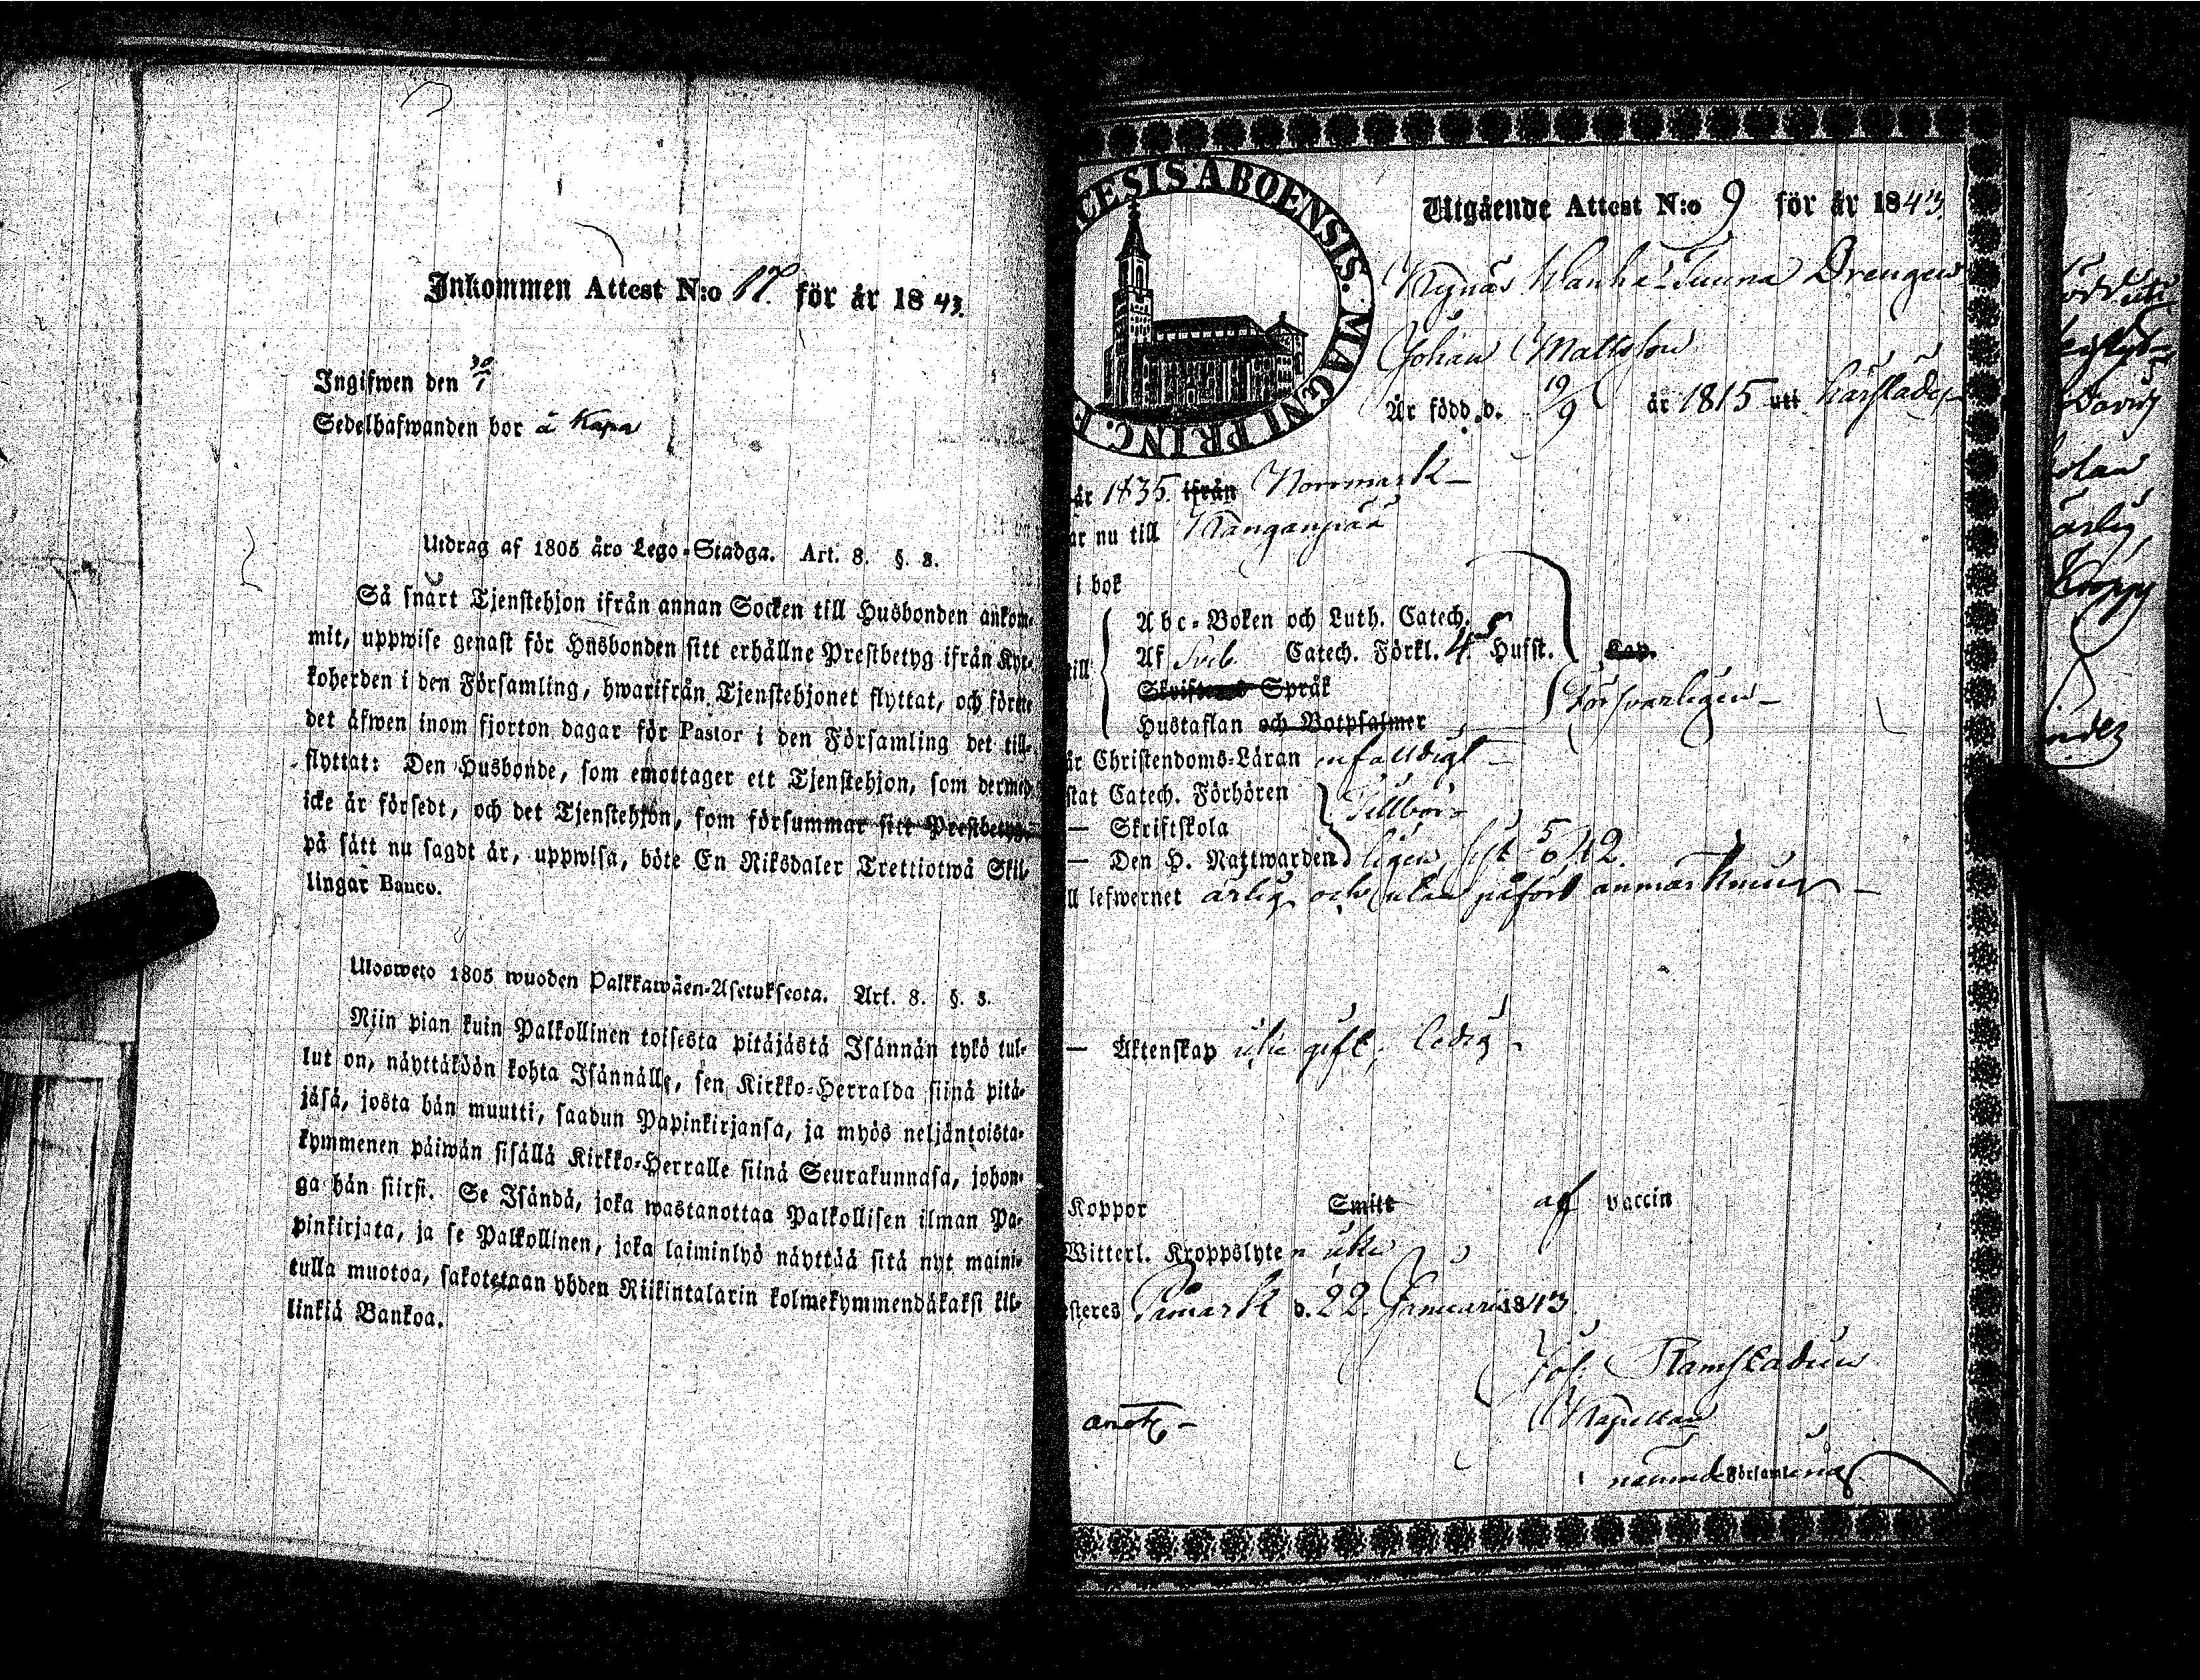 Inkommen Attest N:o 17. för år 1843.
Ingifwen den 30/1
Sedelhafwanden bor å Kapa
Utdrag af 1805 års Lego-Stadga. Art. 8. §. 3.
Så snart Tjenstehjon ifrån annan Socken till Husbonden ankom-
mit, uppwise genast för Husbonden sitt erhållne Prestbetyg ifrån Kyr-
koherden i den Församling, hwarifrån Tjenstehjonet flyttat, och förete
det äfwen inom fjorton dagar för Pastor i den Församling det till-
flyttat: Den Husbonde, som emottager ett Tjenstehjon, som dermed
icke är försedt, och det Tjenstehjon, som försummar sitt Prestbetyg
på sätt nu sagdt är, uppwisa, böte En Riksdaler Trettiotwå Skil-
lingar Banco.
Ulosweto 1805 wuoden Palkkawäen-Asetuksesta. Art. 8. §. 3.
Niin pian kuin Palkollinen toisesta pitäjästä Isännän tykö tul-
lut on, näyttäköön kohta Isännälle, sen Kirkko-Herralda siinä pitä-
jäsä, josta hän muutti, saadun Papinkirjansa, ja myös neljäntoista-
kymmenen päiwän sisällä Kirkko-Herralle siinä Seurakunnasa, johon-
ga hän siirsi. Se Isändä, joka wastanottaa Palkollisen ilman Pa-
pinkirjata, ja se Palkollinen, joka laiminlyö näyttää sitä nyt maini-
tulla muotoa, sakotetaan yhden Riikintalarin kolmekymmendäkaksi kil-
linkiä Bankoa.
CESIS ABOENSIS. MAGNI PRINC. F
Utgående Attest N:o 9 för år 1843.
Drengen
Johan Mattsson
Är född d. 19/9 år 1815 uti härstädes
år 1835. ifrån Norrmark
ar nu till Kanganpää
i bok
Abc-Boken och Luth. Catech.
Af Sveb Catech. Förkl. 4. 5 Hufst. Cap.
Skriftenes Språk
Försvarligen
Hustaflan och Botpsalmer
är Christendoms-Läran enfaldigt
stat Catech. Förhören
Tillbör-
— Skriftskola
— Den H. Nattwarden ligen, 5/6 42.
ll lefwernet ärlig och utan påförd anmärkning
— Äktenskap icke gift, ledig
Koppor Smitt af vaccin
Witterl. Kroppslyten utan
esteres Påmark d. 22. Januari 1843
Joh. Ramstadius
Kapellan
nämnde Församling